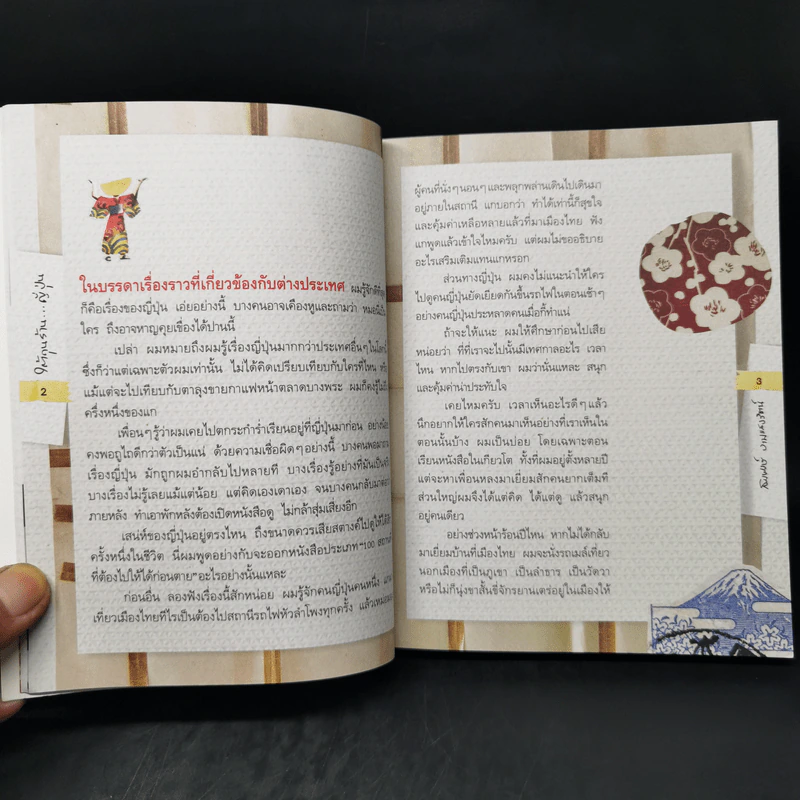 ในบรรดาเรื่องราวที่เกี่ยวข้องกับต่างประเทศ ผมรู้จักดีที่สุด
ก็คือเรื่องของญี่ปุ่น เอ่ยอย่างนี้ บางคนอาจเคืองหูและถามว่า หมอนี่เป็น
ใคร ถึงอาจหาญคุยเขื่องได้ปานนี้
เปล่า ผมหมายถึงผมรู้เรื่องญี่ปุ่นมากกว่าประเทศอื่นๆ
ซึ่งก็ว่าแต่เฉพาะตัวผมเท่านั้น ไม่ได้คิดเปรียบเทียบกับใครที่ไหน
แม้แต่จะไปเทียบกับตาลุงขายกาแฟหน้าตลาดบางพระ ผมก็คงรู้ไม่ถึง
ครึ่งหนึ่งของแก
เพื่อนๆรู้ว่าผมเคยไปตกระกำร่ำเรียนอยู่ที่ญี่ปุ่นมาก่อน อย่างน้อย
คงพอถูไถดีกว่าตัวเป็นแน่ ด้วยความเชื่อผิดๆอย่างนี้ บางคนพอมาถาม
เรื่องญี่ปุ่น มักถูกผมอำกลับไปหลายที บางเรื่องรู้อย่างที่มันเป็นจริง
บางเรื่องไม่รู้เลยแม้แต่น้อย แต่คิดเองเดาเอง จนบางคนกลับมาต่อว่า
ภายหลัง ทำเอาพักหลังต้องเปิดหนังสือดู ไม่กล้าสุ่มเสี่ยงอีก
เสน่ห์ของญี่ปุ่นอยู่ตรงไหน ถึงขนาดควรเสียสตางค์ไปดูให้ได้สัก
ครั้งหนึ่งในชีวิต นี่ผมพูดอย่างกับจะออกหนังสือประเภท "100 สถานที่
ที่ต้องไปให้ได้ก่อนตาย" อะไรอย่างนั้นแหละ
ก่อนอื่น ลองฟังเรื่องนี้สักหน่อย ผมรู้จักคนญี่ปุ่นคนหนึ่ง
เที่ยวเมืองไทยทีไรเป็นต้องไปสถานีรถไฟหัวลำโพงทุกครั้ง
ให้คุณร้าน...ญี่ปุ่น
2
ผู้คนที่นั่งๆนอนๆและพลุกพล่านเดินไปเดินมา
อยู่ภายในสถานี แกบอกว่า ทำได้เท่านี้ก็สุขใจ
และคุ้มค่าเหลือหลายแล้วที่มาเมืองไทย ฟัง
แกพูดแล้วเข้าใจไหมครับ แต่ผมไม่ขออธิบาย
อะไรเสริมเติมแทนแกหรอก
ส่วนทางญี่ปุ่น ผมคงไม่แนะนำให้ใคร
ไปดูคนญี่ปุ่นยัดเยียดกันขึ้นรถไฟในตอนเช้าๆ
อย่างคนญี่ปุ่นประหลาดคนเมื่อกี้ทำแน่
ถ้าจะให้แนะ ผมให้ศึกษาก่อนไปเสีย
หน่อยว่า ที่ที่เราจะไปนั้นมีเทศกาลอะไร เวลา
ไหน หากไปตรงกับเขา ผมว่านั่นแหละ สนุก
และคุ้มค่าน่าประทับใจ
เคยไหมครับ เวลาเห็นอะไรดีๆแล้ว
นึกอยากให้ใครสักคนมาเห็นอย่างที่เราเห็นใน
ตอนนั้นบ้าง ผมเป็นบ่อย โดยเฉพาะตอน
เรียนหนังสือในเกียวโต ทั้งที่ผมอยู่ตั้งหลายปี
แต่จะหาเพื่อนหลงมาเยี่ยมสักคนยากเต็มที
ส่วนใหญ่ผมจึงได้แต่คิด ได้แต่ดู แล้วสนุก
อยู่คนเดียว
อย่างช่วงหน้าร้อนปีไหน หากไม่ได้กลับ
มาเยี่ยมบ้านที่เมืองไทย ผมจะนั่งรถเมล์เที่ยว
นอกเมืองที่เป็นภูเขา เป็นลำธาร เป็นวัดวา
หรือไม่ก็นุ่งขาสั้นขี่จักรยานเตร่อยู่ในเมืองให้
3